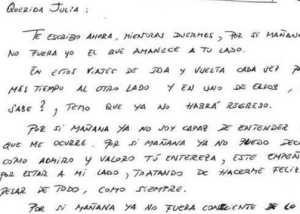 QUERIDA JULIA:
TE ESCRIBO AHORA, MIENTRAS DUERMES, POR SI MAÑANA
NO FUERA YO EL QUE AMANECE A TU LADO.
EN ESTOS VIAJES DE IDA Y VUELTA CADA VEZ P
MÁS TIEMPO AL OTRO LADO Y EN UNO DE ELLOS,
SABE?, TEMO QUE YA NO HABRÁ REGRESO.
POR SI MAÑANA YA NO SOY CAPAZ DE ENTENDER
QUE ME OCURRE. POR SI MAÑANA YA NO PUEDO DEC
CÓMO ADMIRO Y VALORO TÚ ENTEREZA, ESTE EMPEÑ
POR ESTAR A MI LADO, TRATANDO DE HACERME FELIZ
PESAR DE TODO, COMO SIEMPRE.
POR SI MAÑANA YA NO FUERA CONSCIENTE DE LO